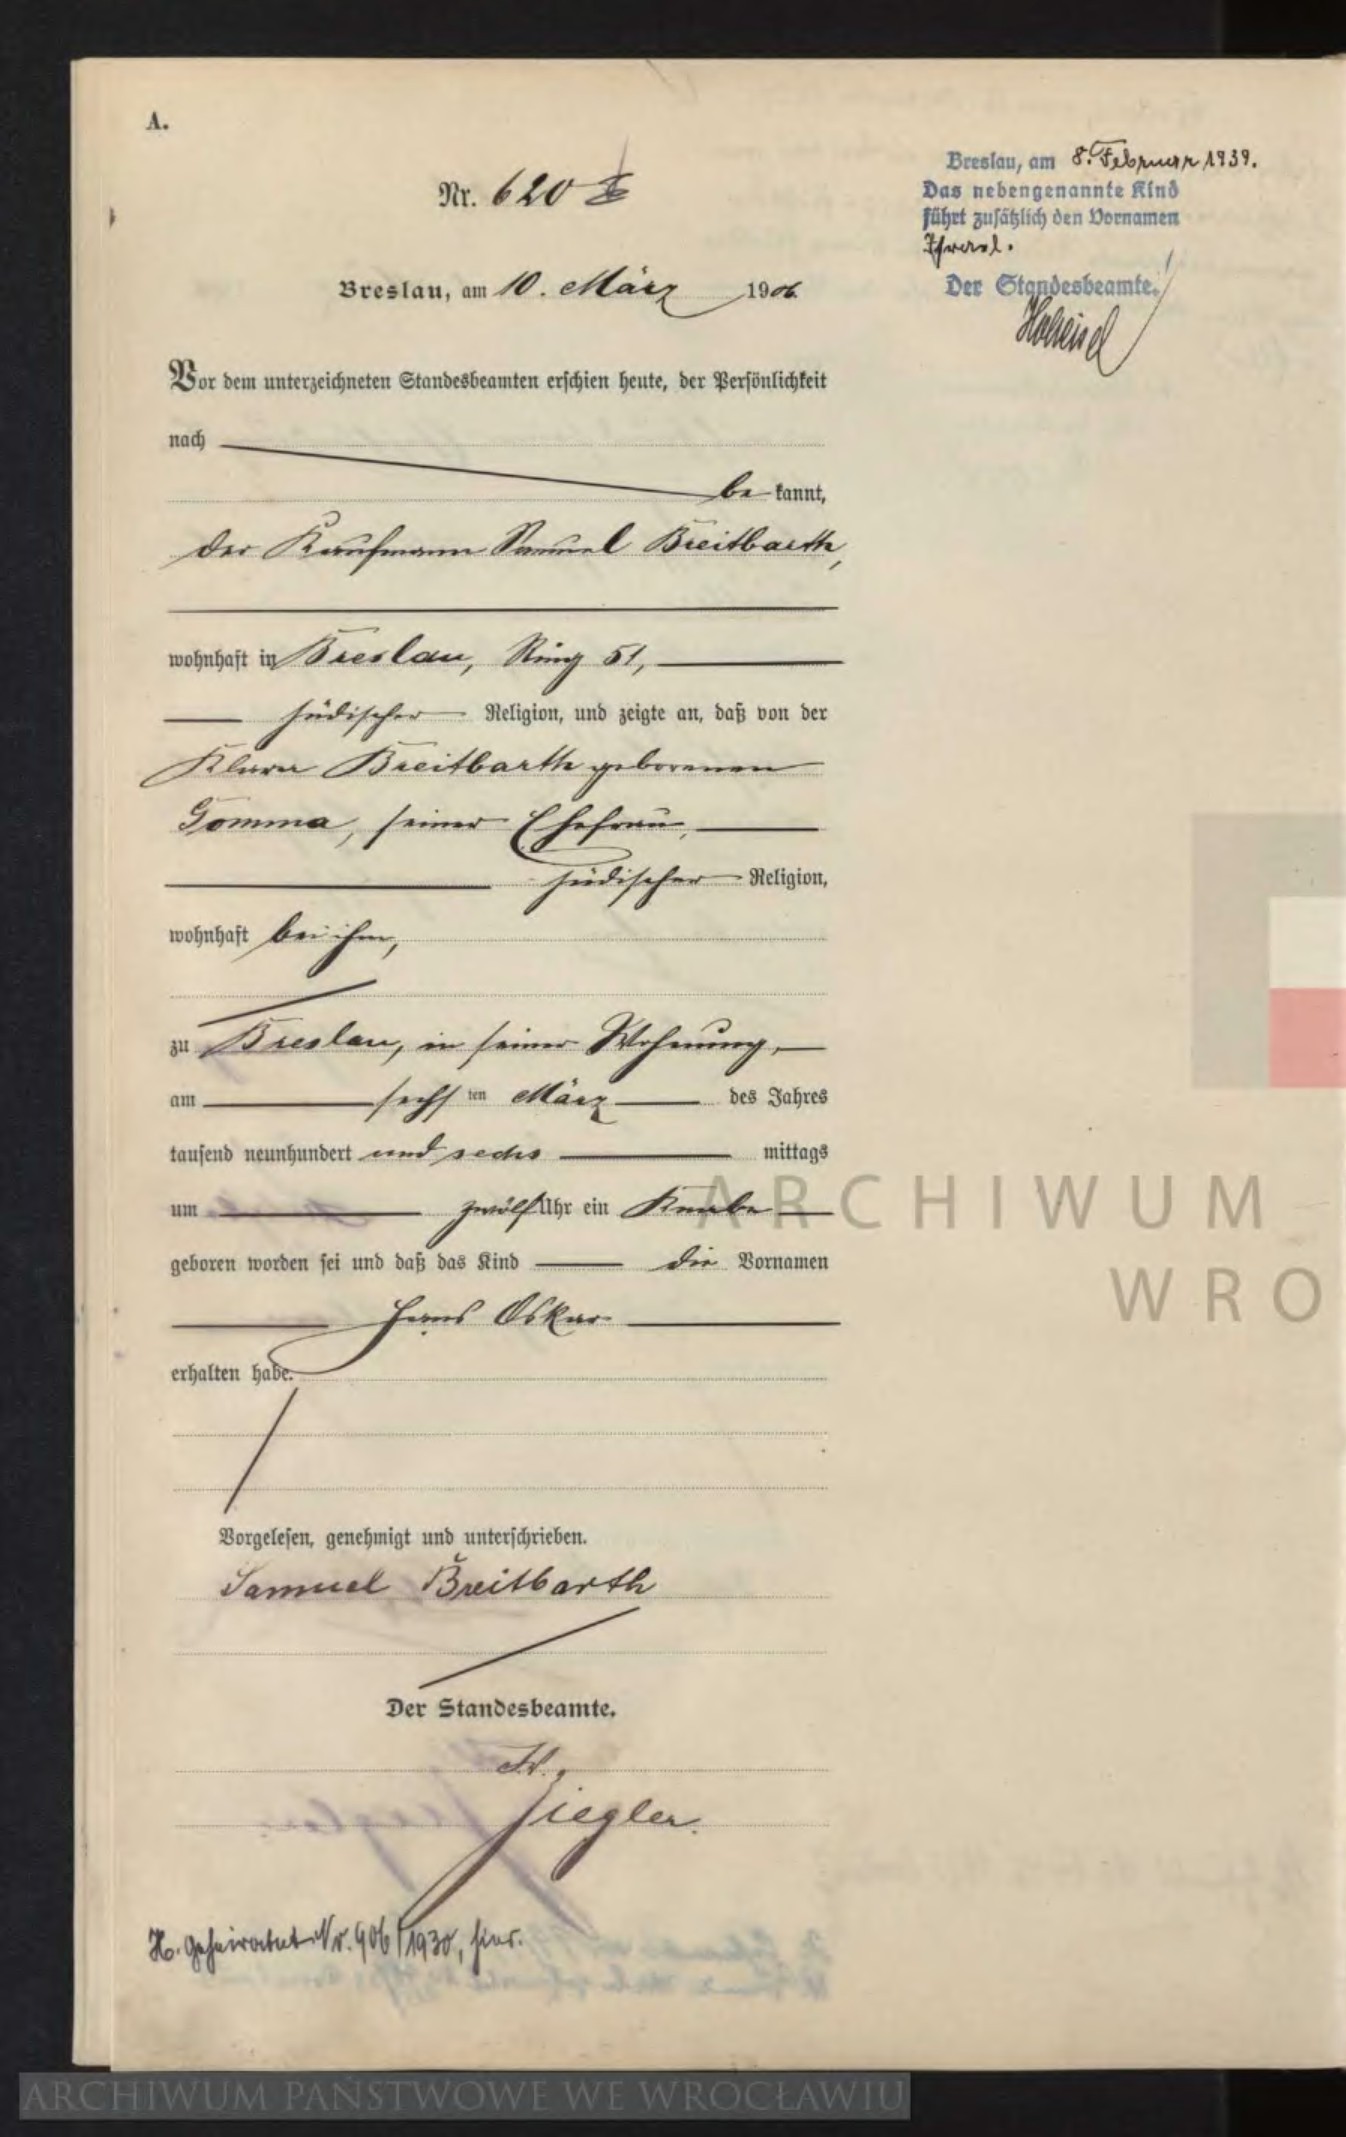 A.
Nr. 620 I
Breslau, am 10. März 1906.
Breslau, am 8. Februar 1939.
Das nebengenannte Kind
führt zusätzlich den Vornamen
Israel.
Der Standesbeamte.
Hoheisel
Vor dem unterzeichneten Standesbeamten erschien heute, der Persönlichkeit
nach
be kannt,
der Kaufmann Samuel Breitbarth,
wohnhaft in Breslau, Ring 51,
jüdischer Religion, und zeigte an, daß von der
Klara Breitbarth geborenen
Tomma, seiner Ehefrau,
jüdischer Religion,
wohnhaft bei ihm,
zu Breslau, in seiner Wohnung,
am sechs ten März des Jahres
tausend neunhundert und sechs mittags
um zwölf Uhr ein Knabe
geboren worden sei und daß das Kind die Vornamen
Hans Oskar
erhalten habe.
Vorgelesen, genehmigt und unterschrieben.
Samuel Breitbarth
Der Standesbeamte.
Ziegler.
H. geheiratet Nr. 906/1930, hier.
ARCHIWUM
WRO
ARCHIWUM PAŃSTWOWE WE WROCŁAWIU